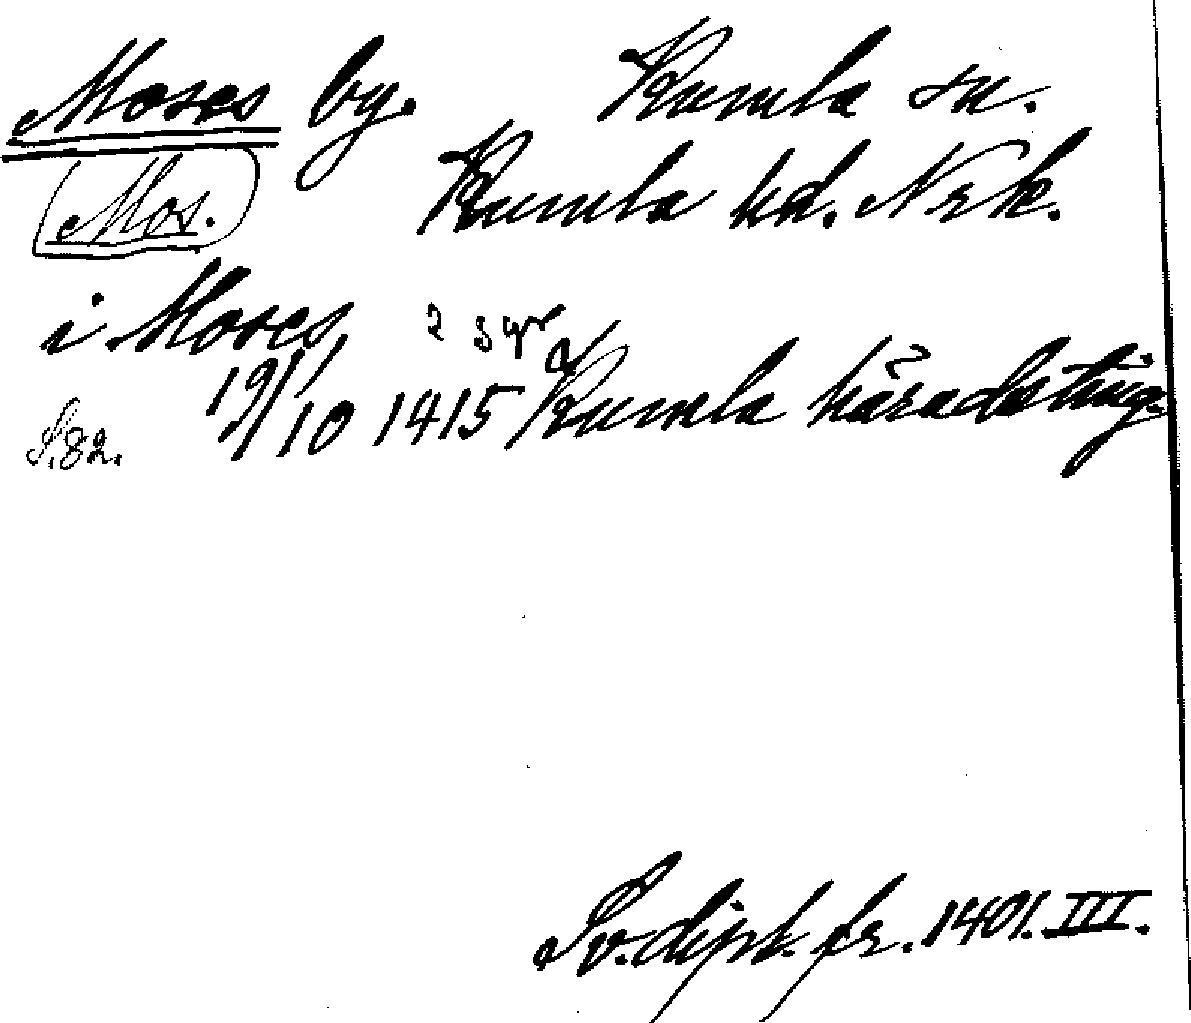 Moses by. Kumla sn.
Mos. Kumla hd. Nrk.
i Moses, 2 sgr
19/10 1415 Kumla häradsting.
S. 82.
Sv. dipl. fr. 1401. III.